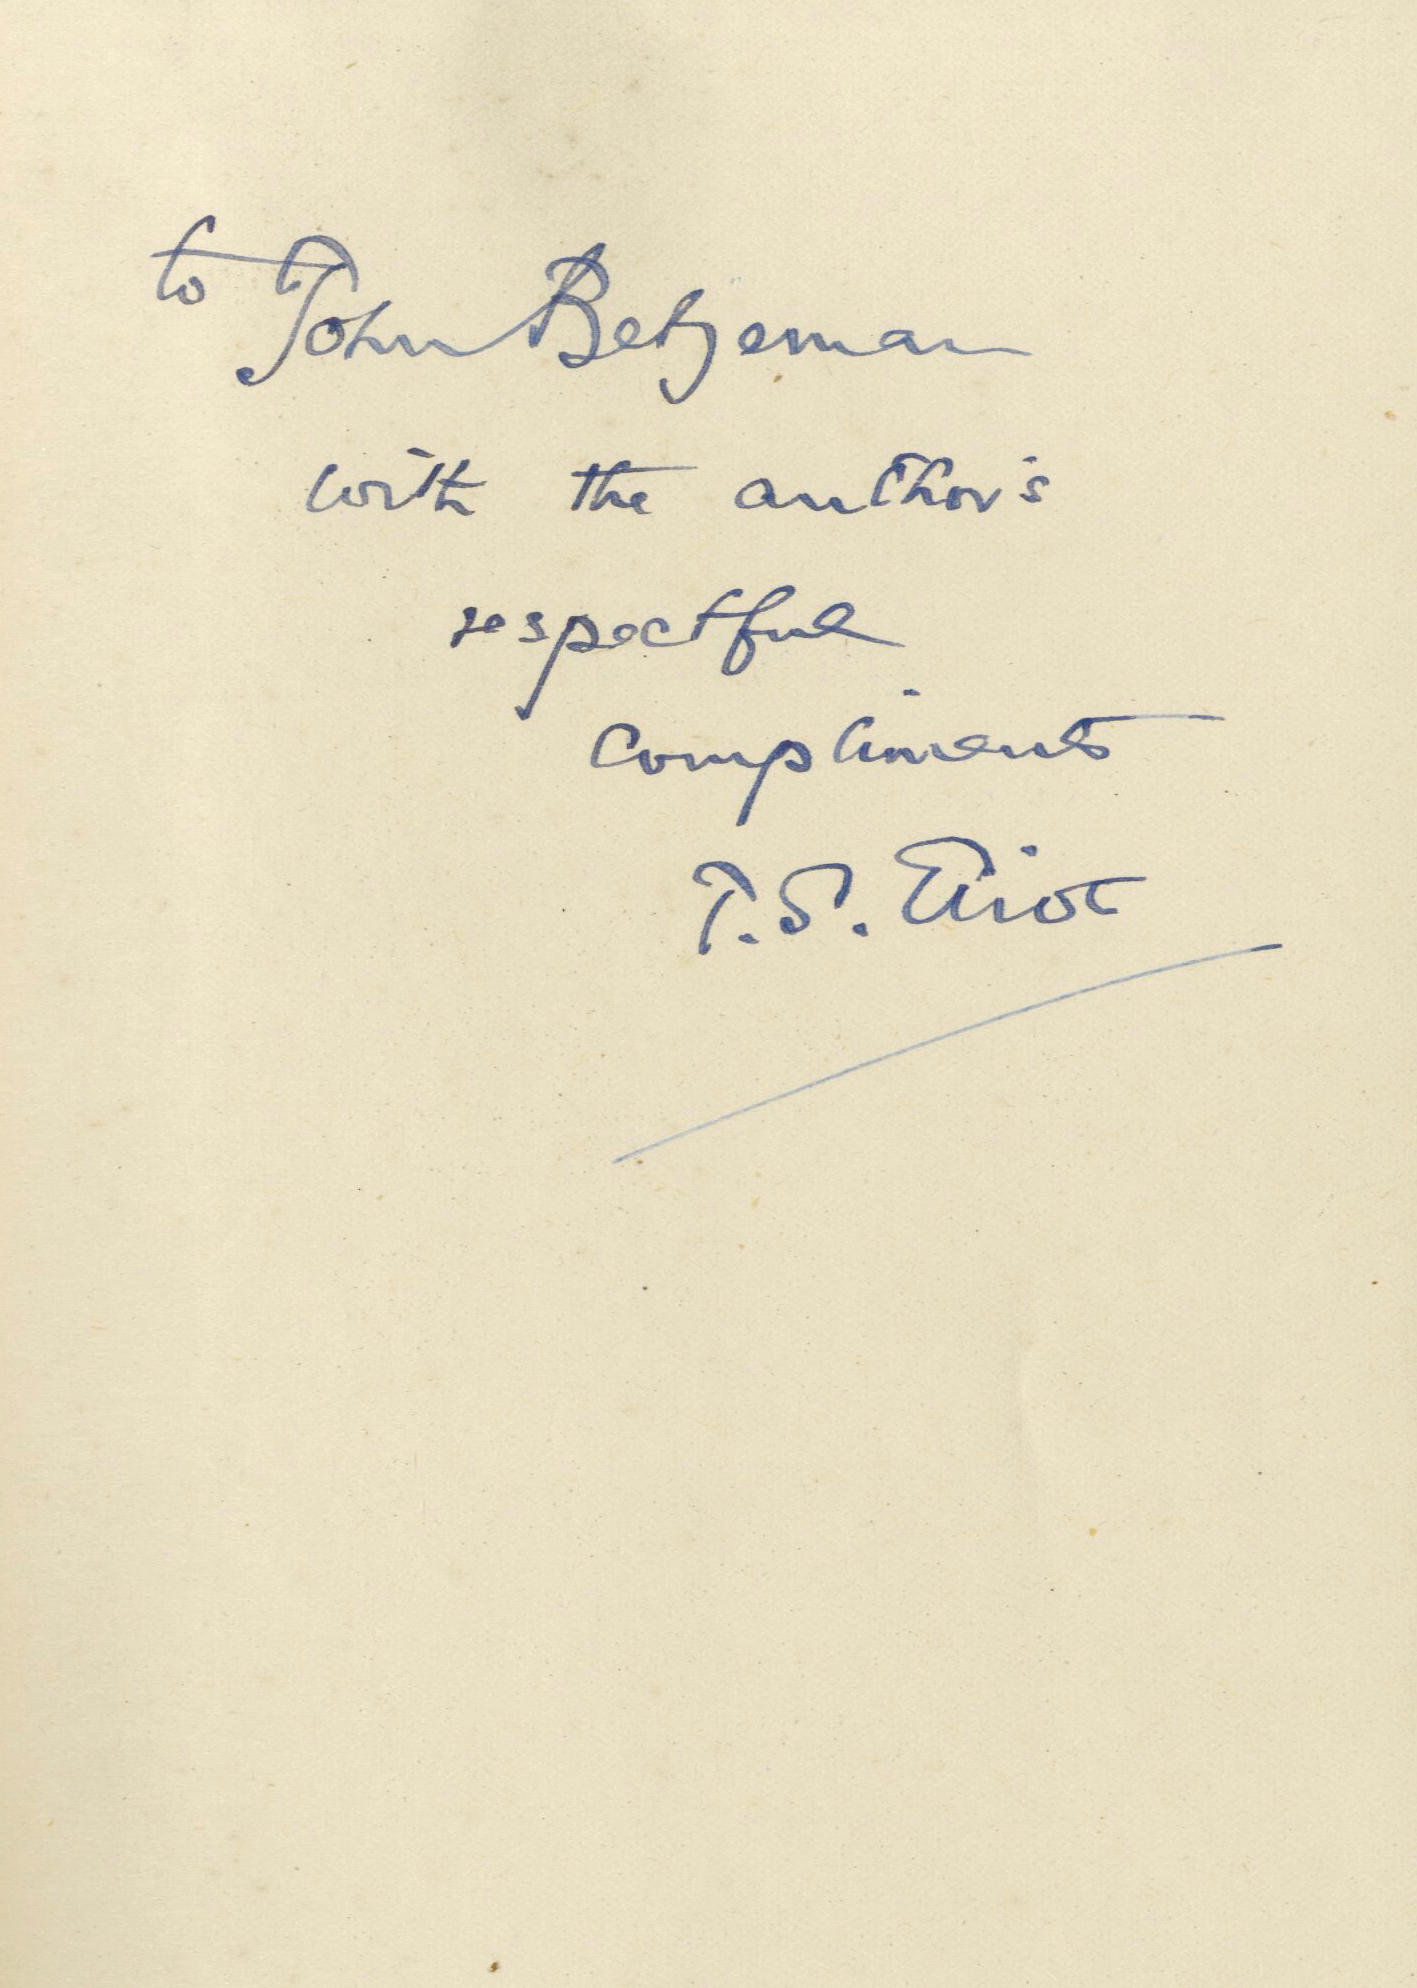 to John Betjeman
with the author's
respectful
compliments
T. S. Eliot